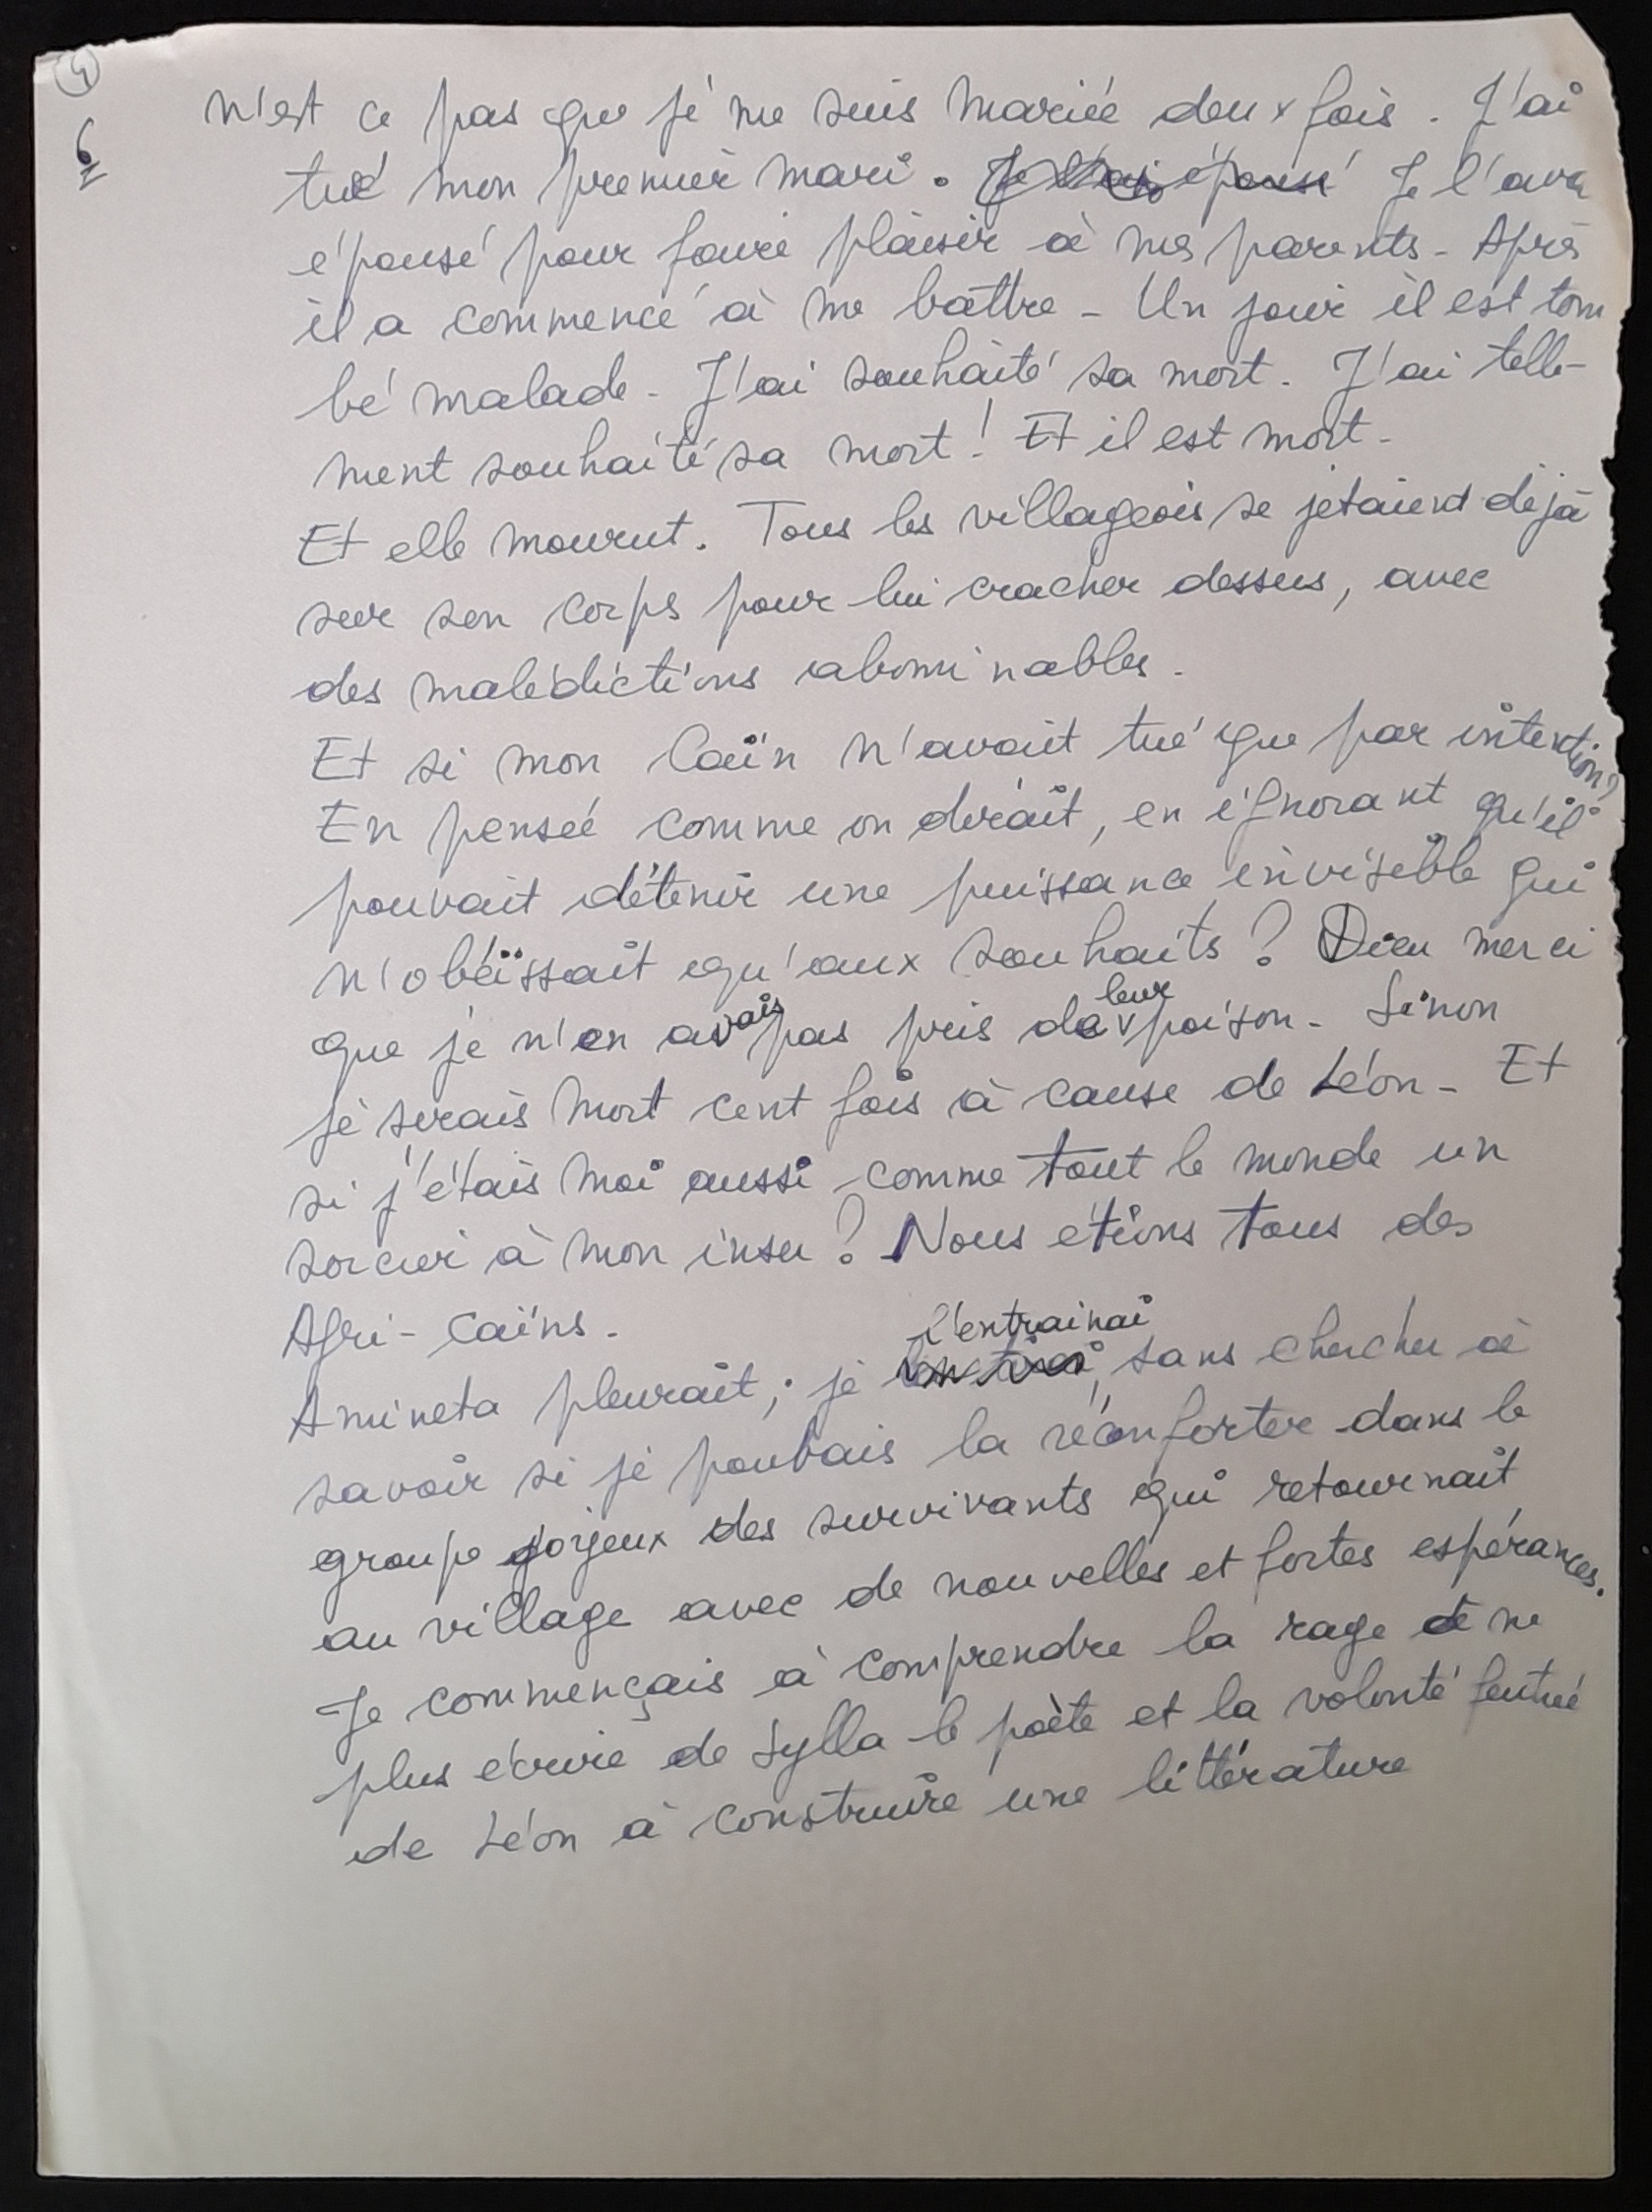 4
6
n'est ce pas que je me suis mariée deux fois. J'ai
tué mon premier mari. Je l'ai épousé Je l'avai
épousé pour faire plaisir à mes parents - Après
il a commencé à me battre - Un jour il est tom
bé malade - J'ai souhaité sa mort. J'ai telle-
ment souhaité sa mort! Et il est mort.
Et elle mourut. Tous les villageois se jetaient déjà
sur son corps pour lui cracher dessus, avec
des malédictions abominables.
Et si mon Caïn n'avait tué que par intention?
En pensée comme on dirait, en ignorant qu'il
pouvait détenir une puissance invisible qui
n'obéissait qu'aux souhaits? Dieu merci
que je n'en avais pas pris de leur poison - Sinon
je serais mort cent fois à cause de Léon - Et
si j'étais moi aussi comme tout le monde un
sorcier à mon insu? Nous étions tous des
Afri-caïns.
l'entrainai
Amineta pleurait; je, sans chercher à
savoir si je pouvais la réconforter dans le
groupe joyeux des survivants qui retournait
au village avec de nouvelles et fortes espérances.
Je commençais à comprendre la rage de ne
plus écrire de Sylla le poète et la volonté feutrée
de Léon à construire une littérature